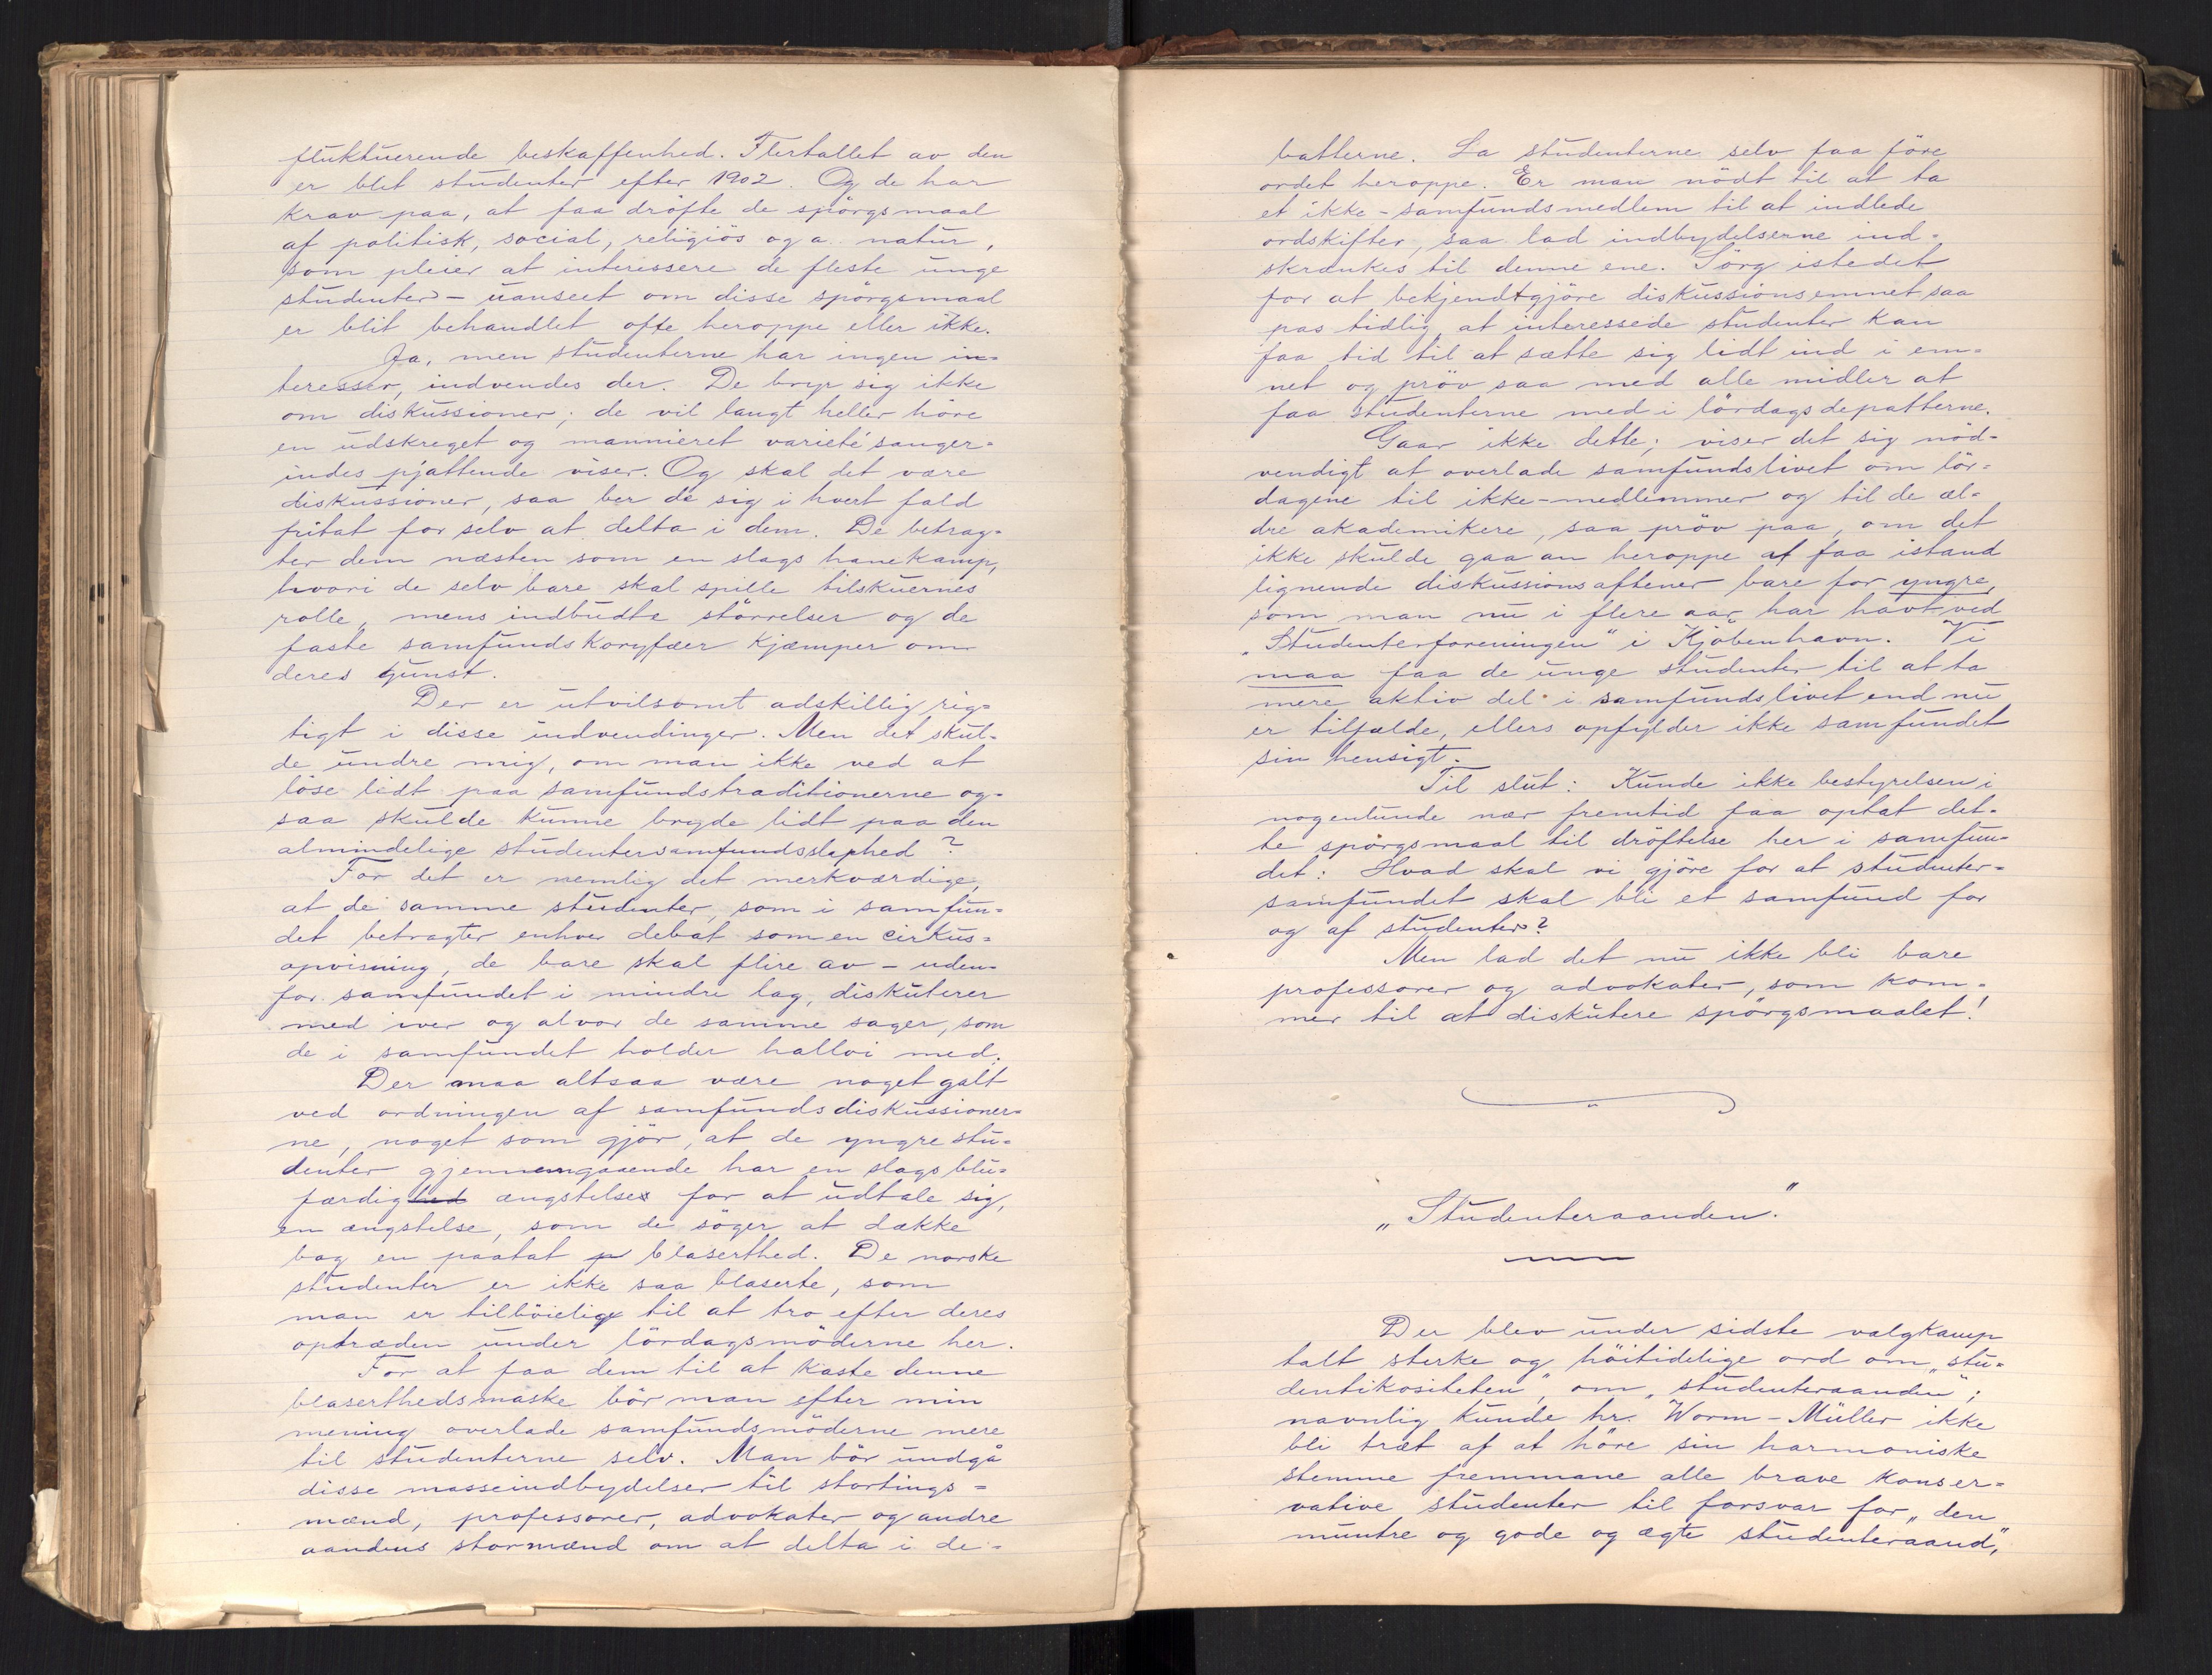 fluktuerende beskaffenhed. Flertallet av den
er blit studenter efter 1902. Og de har
krav paa, at faa dröfte de spörgsmaal
af politisk, social, religiös og a. natur,
som pleier at interessere de fleste unge
studenter – uanseet om disse spörgsmaal
er blit behandlet ofte heroppe eller ikke.
Ja, men studenterne har ingen in=
teresser, indvendes der. De bryr sig ikke
om diskussioner; de vil langt heller höre
en udskreget og mannieret varieté sanger=
indes pjattende viser. Og skal det være
diskussioner, saa ber de sig i hvert fald
fritat for selv at delta i dem. De betrag=
ter dem næsten som en slags hanekamp,
hvori de selv bare skal spille tilskuernes
rolle, mens indbudte störrelser og de
faste samfundskoryfæer kjæmper om
deres gunst.
Der er utvilsomt adskillig rig=
tigt i disse indvendinger. Men det skul=
de undre mig, om man ikke ved at
löse lidt paa samfundstraditionerne og=
saa skulde kunne bryde lidt paa den
almindelige studentersamfundsslaphed?
For det er nemlig det merkværdige,
at de samme studenter, som i samfun=
det betragter enhver debat som en cirkus=
opvisning, de bare skal flire av – uden=
for samfundet i mindre lag, diskuterer
med iver og alvor de samme sager, som
de i samfundet holder halloi med.
Der maa altsaa være noget galt
ved ordningen af samfundsdiskussioner=
ne, noget som gjör, at de yngre stu=
denter gjennemgaaende har en slags blu=
færdighed ængstelses for at udtale sig,
en ængstelse, som de söger at dække
bag en paatat p blaserthed. De norske
studenter er ikke saa blaserte, som
man er tilböielige til at tro efter deres
optræden under lördagsmöderne her.
For at faa dem til at kaste denne
blaserthedsmaske bör man efter min
mening overlade samfundsmöderne mere
til studenterne selv. Man bör undgå
disse masseindbydelser til stortings=
mænd, professorer, advokater og andre
aandens stormænd om at delta i de=
batterne. La studenterne selv faa före
ordet heroppe. Er man nödt til at ta
et ikke-samfundsmedlem til at indlede
ordskifter, saa lad indbydelserne ind=
skrænkes til denne ene. Sörg istedet
for at bekjendtgjöre diskussionsemnet saa
pas tidlig, at interessede studenter kan
faa tid til at sætte sig lidt ind i em=
net og pröv saa med alle midler at
faa studenterne med i lördagsdepatterne.
Gaar ikke dette; viser det sig nöd=
vendigt at overlade samfundslivet om lör=
dagene til ikke-medlemmer og til de æl=
dre akademikere, saa pröv paa, om det
ikke skulde gaa an heroppe at faa istand
lignende diskussionsaftener bare for yngre,
som man nu i flere aar har havt ved
„Studenterforeningen" i Kjöbenhavn. Vi
maa faa de unge studenter til at ta
mere aktiv del i samfundslivet end nu
er tilfælde, ellers opfylder ikke samfundet
sin hensigt.
Til slut: Kunde ikke bestyrelsen i
nogenlunde nær fremtid faa optat det=
te spörgsmaal til dröftelse her i samfun=
det: Hvad skal vi gjöre for at studenter=
samfundet skal bli et samfund for
og af studenter?
Men lad det nu ikke bli bare
professorer og advokater, som kom=
mer til at diskutere spörgsmaalet!
„Studenteraanden."
Der blev under sidste valgkamp
talt sterke og höitidelige ord om „stu=
dentikositeten", om „studenteraanden";
navnlig kunde hr. Worm-Müller ikke
bli træt af at höre sin harmoniske
stemme fremmane alle brave konser=
vative studenter til forsvar for „den
muntre og gode og ægte studenteraand,"